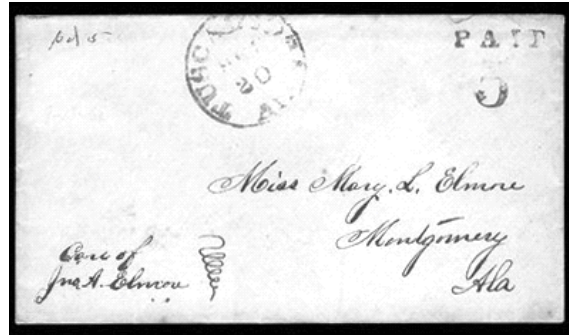 pd 5
20
PAID
5
Miss Mary. L. Elmore
Montgomery
Ala
Care of
Jno A. Elmore